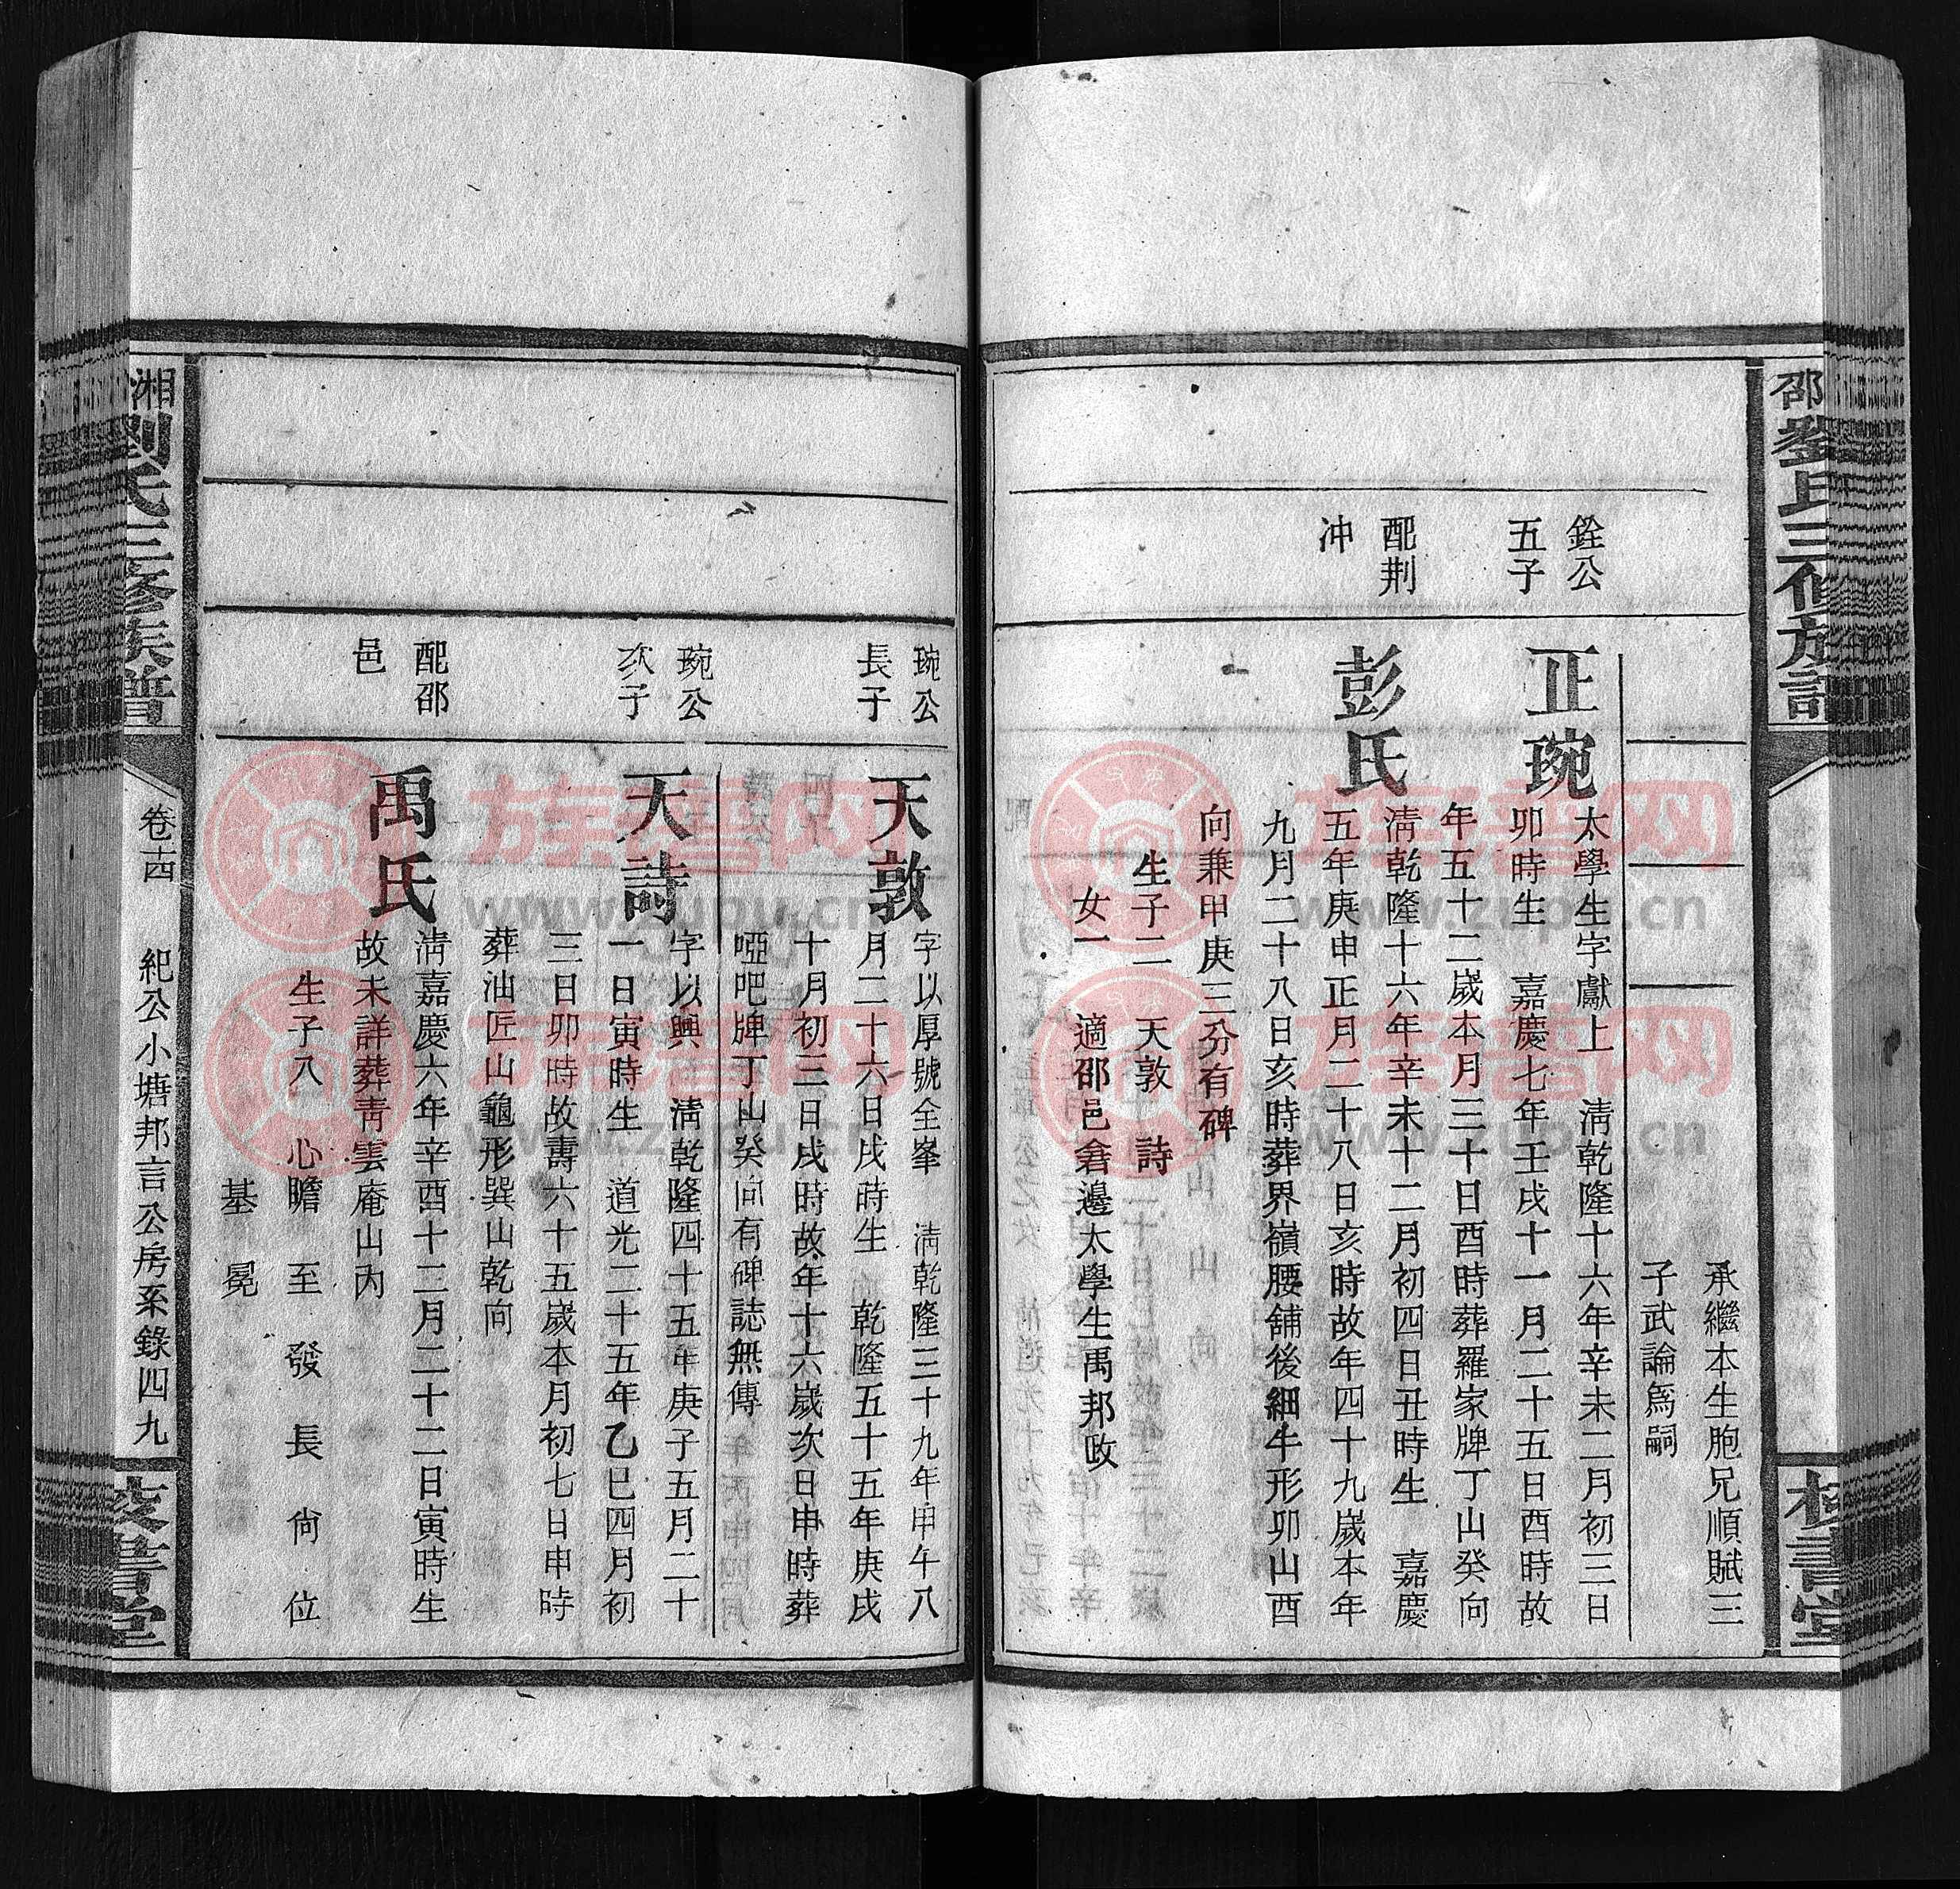 邵劉氏三修族譜
校書堂
承繼本生胞兄順賦三
子武論爲嗣
銓公
五子
正琬
太學生字獻上　清乾隆十六年辛未二月初三日
卯時生　嘉慶七年壬戌十一月二十五日酉時故
年五十二歲本月三十日酉時葬羅家牌丁山癸向
配荆
冲
彭氏
清乾隆十六年辛未十二月初四日丑時生　嘉慶
五年庚申正月二十八日亥時故年四十九歲本年
九月二十八日亥時葬界嶺腰舖後細牛形卯山酉
向兼甲庚三分有碑
生子二　天敦　詩
女一　適邵邑倉邊太學生禹邦政
琬公
長子
天敦
字以厚號全峯　清乾隆三十九年甲午八
月二十六日戌時生　乾隆五十五年庚戌
十月初三日戌時故年十六歲次日申時葬
啞吧牌丁山癸向有碑誌無傳
琬公
次子
天詩
字以興　清乾隆四十五年庚子五月二十
一日寅時生　道光二十五年乙巳四月初
三日卯時故壽六十五歲本月初七日申時
葬油匠山龜形巽山乾向
配邵
邑
禹氏
清嘉慶六年辛酉十二月二十二日寅時生
故未詳葬青雲庵山內
生子八　心瞻　至　發　長　尙　位
基　冕
湘劉氏三修族譜
卷十四　紀公小塘邦言公房系錄四九
校書堂
族譜网
www.zupu.cn
族譜网
www.zupu.cn
族譜网
www.zupu.cn
族譜网
www.zupu.cn